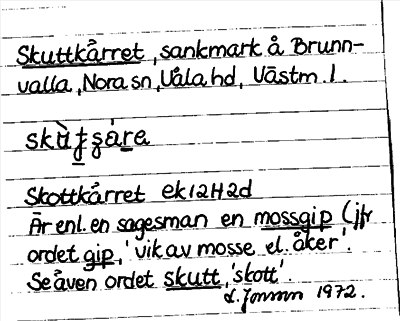 Skuttkårret, sankmark å Brunn-
valla, Nora sn, Våla hd, Västm. l.
Skottkårret ek 12H2d
Är enl. en sagesman en mossgip (jfr
ordet gip, 'vik av mosse el. åker'.
Se även ordet skutt, 'skott'.
1972.